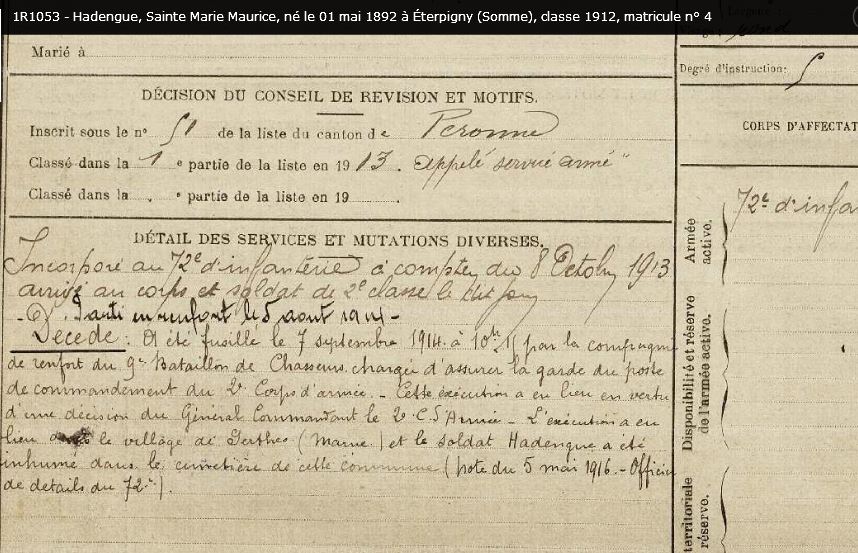 1R1053 - Hadengue, Sainte Marie Maurice, né le 01 mai 1892 à Éterpigny (Somme), classe 1912, matricule n° 4
Marié à
DÉCISION DU CONSEIL DE REVISION ET MOTIFS.
Inscrit sous le n° 51 de la liste du canton de Peronne
Classé dans la 1 e partie de la liste en 1913. Appelé service armé"
Classé dans la . e partie de la liste en 19
DÉTAIL DES SERVICES ET MUTATIONS DIVERSES.
Incorporé au 72e d'infanterie à compter du 8 Octobre 1913
arrivé au corps et soldat de 2e classe le dit jour
Parti en renfort le 5 aout 1914-
Décédé : A été fusillé le 7 septembre 1914 à 10h 15 par la compagnie
de renfort du 9e Bataillon de Chasseurs chargée d'assurer la garde du poste
de commandement du 2e Corps d'armée. - Cette exécution a eu lieu en vertu
d'une décision du Général Commandant le 2e C d'Armée - L'exécution a eu
lieu le village de Perthes (Marne) et le soldat Hadengue a été
inhumé dans le cimetière de cette commune (note du 5 mai 1916. - Officier
de détails du 72e).
Degré d'instruction:
CORPS D'AFFECTAT
Armée active.
72e d'infan
Disponibilité et réserve de l'armée active.
territoriale
réserve.